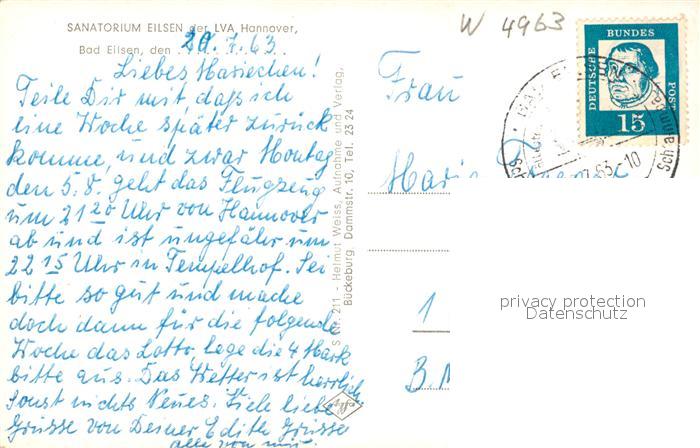 SANATORIUM EILSEN der LVA Hannover,
Bad Eilsen, den 29.7.63
Liebes Mariechen!
Teile Dir mit, daß ich
eine Woche später zurück
komme, und zwar Montag
den 5.8. geht das Flugzeug
um 21 20 Uhr von Hannover
ab und ist ungefähr um
22 15 Uhr in Tempelhof. Sei
bitte so gut und mache
doch dann für die folgende
Woche das Lotto, lege die 4 Mark
bitte aus. Das Wetter ist herrlich
sonst nichts Neues. Viele liebe
Grüsse von Deiner Edith Grüsse
alle von mir.
S Nr. 211 - Helmut Weiss, Aufnahme und Verlag,
Bückeburg, Dammstr. 10, Tel. 23 24
W 4963
DEUTSCHE
BUNDES
POST
15
63-10
Frau
1
privacy protection
Datenschutz